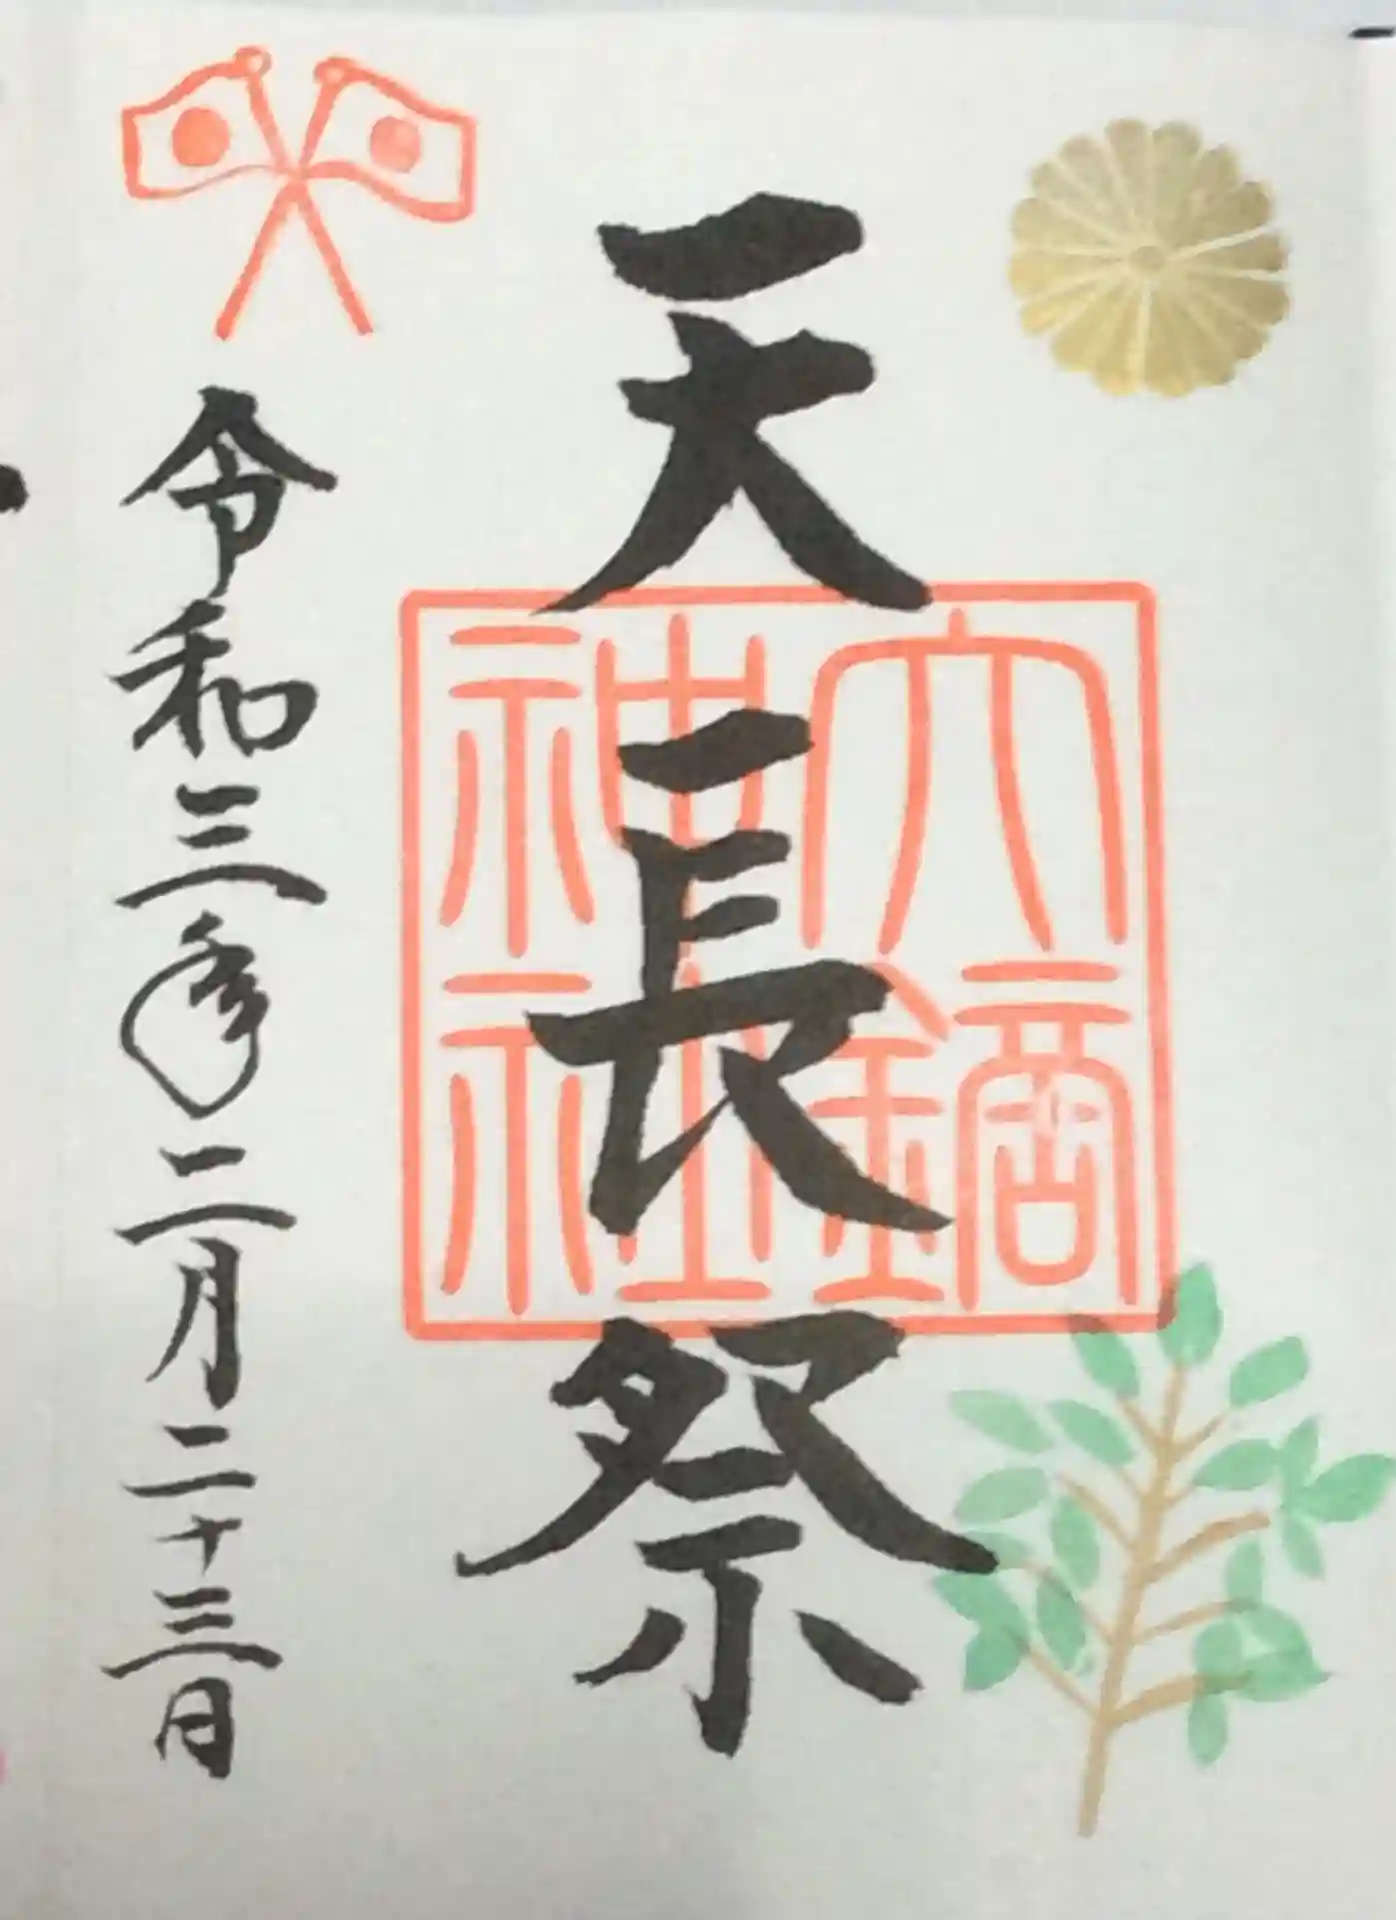 天長祭
六鏑神社
令和三年二月二十三日